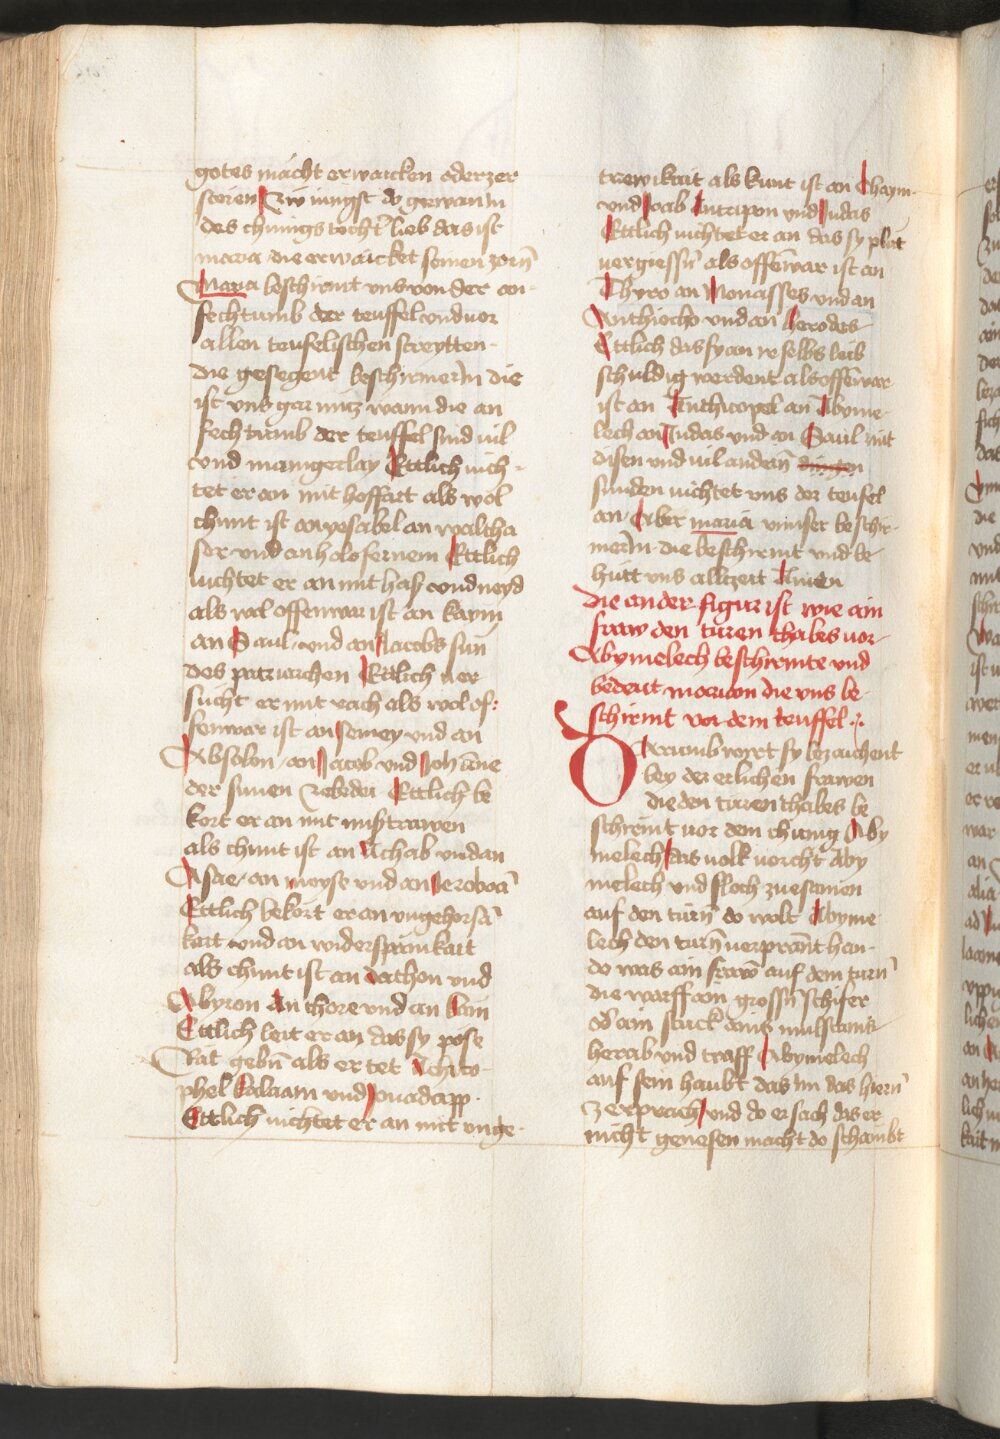 gotes mächt erwaicken oder zer
storen Zw iüngst do gewan in
des chünigs tocht lieb das ist
maria die erwaicket seinen zorn
Maria beschirmt vns von der an
fechtumb der teuffel vnd vor
allen teufelischen streytten
die gesegent beschirmerin die
ist vns gar nütz wann die an
fechtumb der teuffel sind uil
vnd manigerlay Ettlich uich
tet er an mit hoffart als wol
chunt ist an yesabel an waltha
sar vnd an holofernem Ettlich
uichtet er an mit haß vnd neyd
als wol offenwar ist an kayin
an Saul vnd an Jacobs sün
des patriarchen Ettlich uer
sucht er mit rach als wol of
fenwar ist an semey vnd an
Absolon an Jacob vnd Johanne
der sünen Zebedei Ettlich be
kort er an mit mißtrawen
als chunt ist an Achab vnd an
Asae an moyse vnd an Jeroboa
Ettlich bekort er an vngehorsa
kait vnd an widerspänikait
als chunt ist an dathon vnd
Abyron an chore vnd an kain
Ettlich leit er an das sy pöse
Rät gebn als er tet Achito
phel balaam vnd Jonadapp
Ettlich uichtet er an mit vnge
trewikait als kunt ist an Chaym
vnd Joab Antripon vnd Judas
Ettlich uichtet er an das sy plut
uergiessn als offenwar ist an
Thyro an Monasses vnd an
Anthiocho vnd an herodes
Ettlich das sy an ir selbs leib
schuldig werdent als offenwar
ist an Anthicopel an Abyme
lech an Judas vnd an Saul mit
disen vnd uil andern
sünden uichtet vns der teufel
an Aber maria vnnser beschir
merin die beschirmt vnd be
hütt vns allczeit Amen
die ander figur ist wie ain
fraw den turen thabes vor
Abymelech beschirmte vnd
bedeut mariam die vns be
schirmt vor dem teuffel
Darumb wirt sy bezaichent
bey der erlichen frawen
die den turen thabes be
schirmt uor dem chünig Aby
melech das uolk uorcht Aby
melech vnd floch zuesamen
auf den turn do wolt Abyme
lech den turn uerprant han
do was ain fraw auf dem turn
die warff ain grossn schifer
od ain stuck ains mülstains
herab vnd traff Abymelech
auf sein haubt das im das hiern
zerprach vnd do er sach das er
nicht genesen macht do schaubt